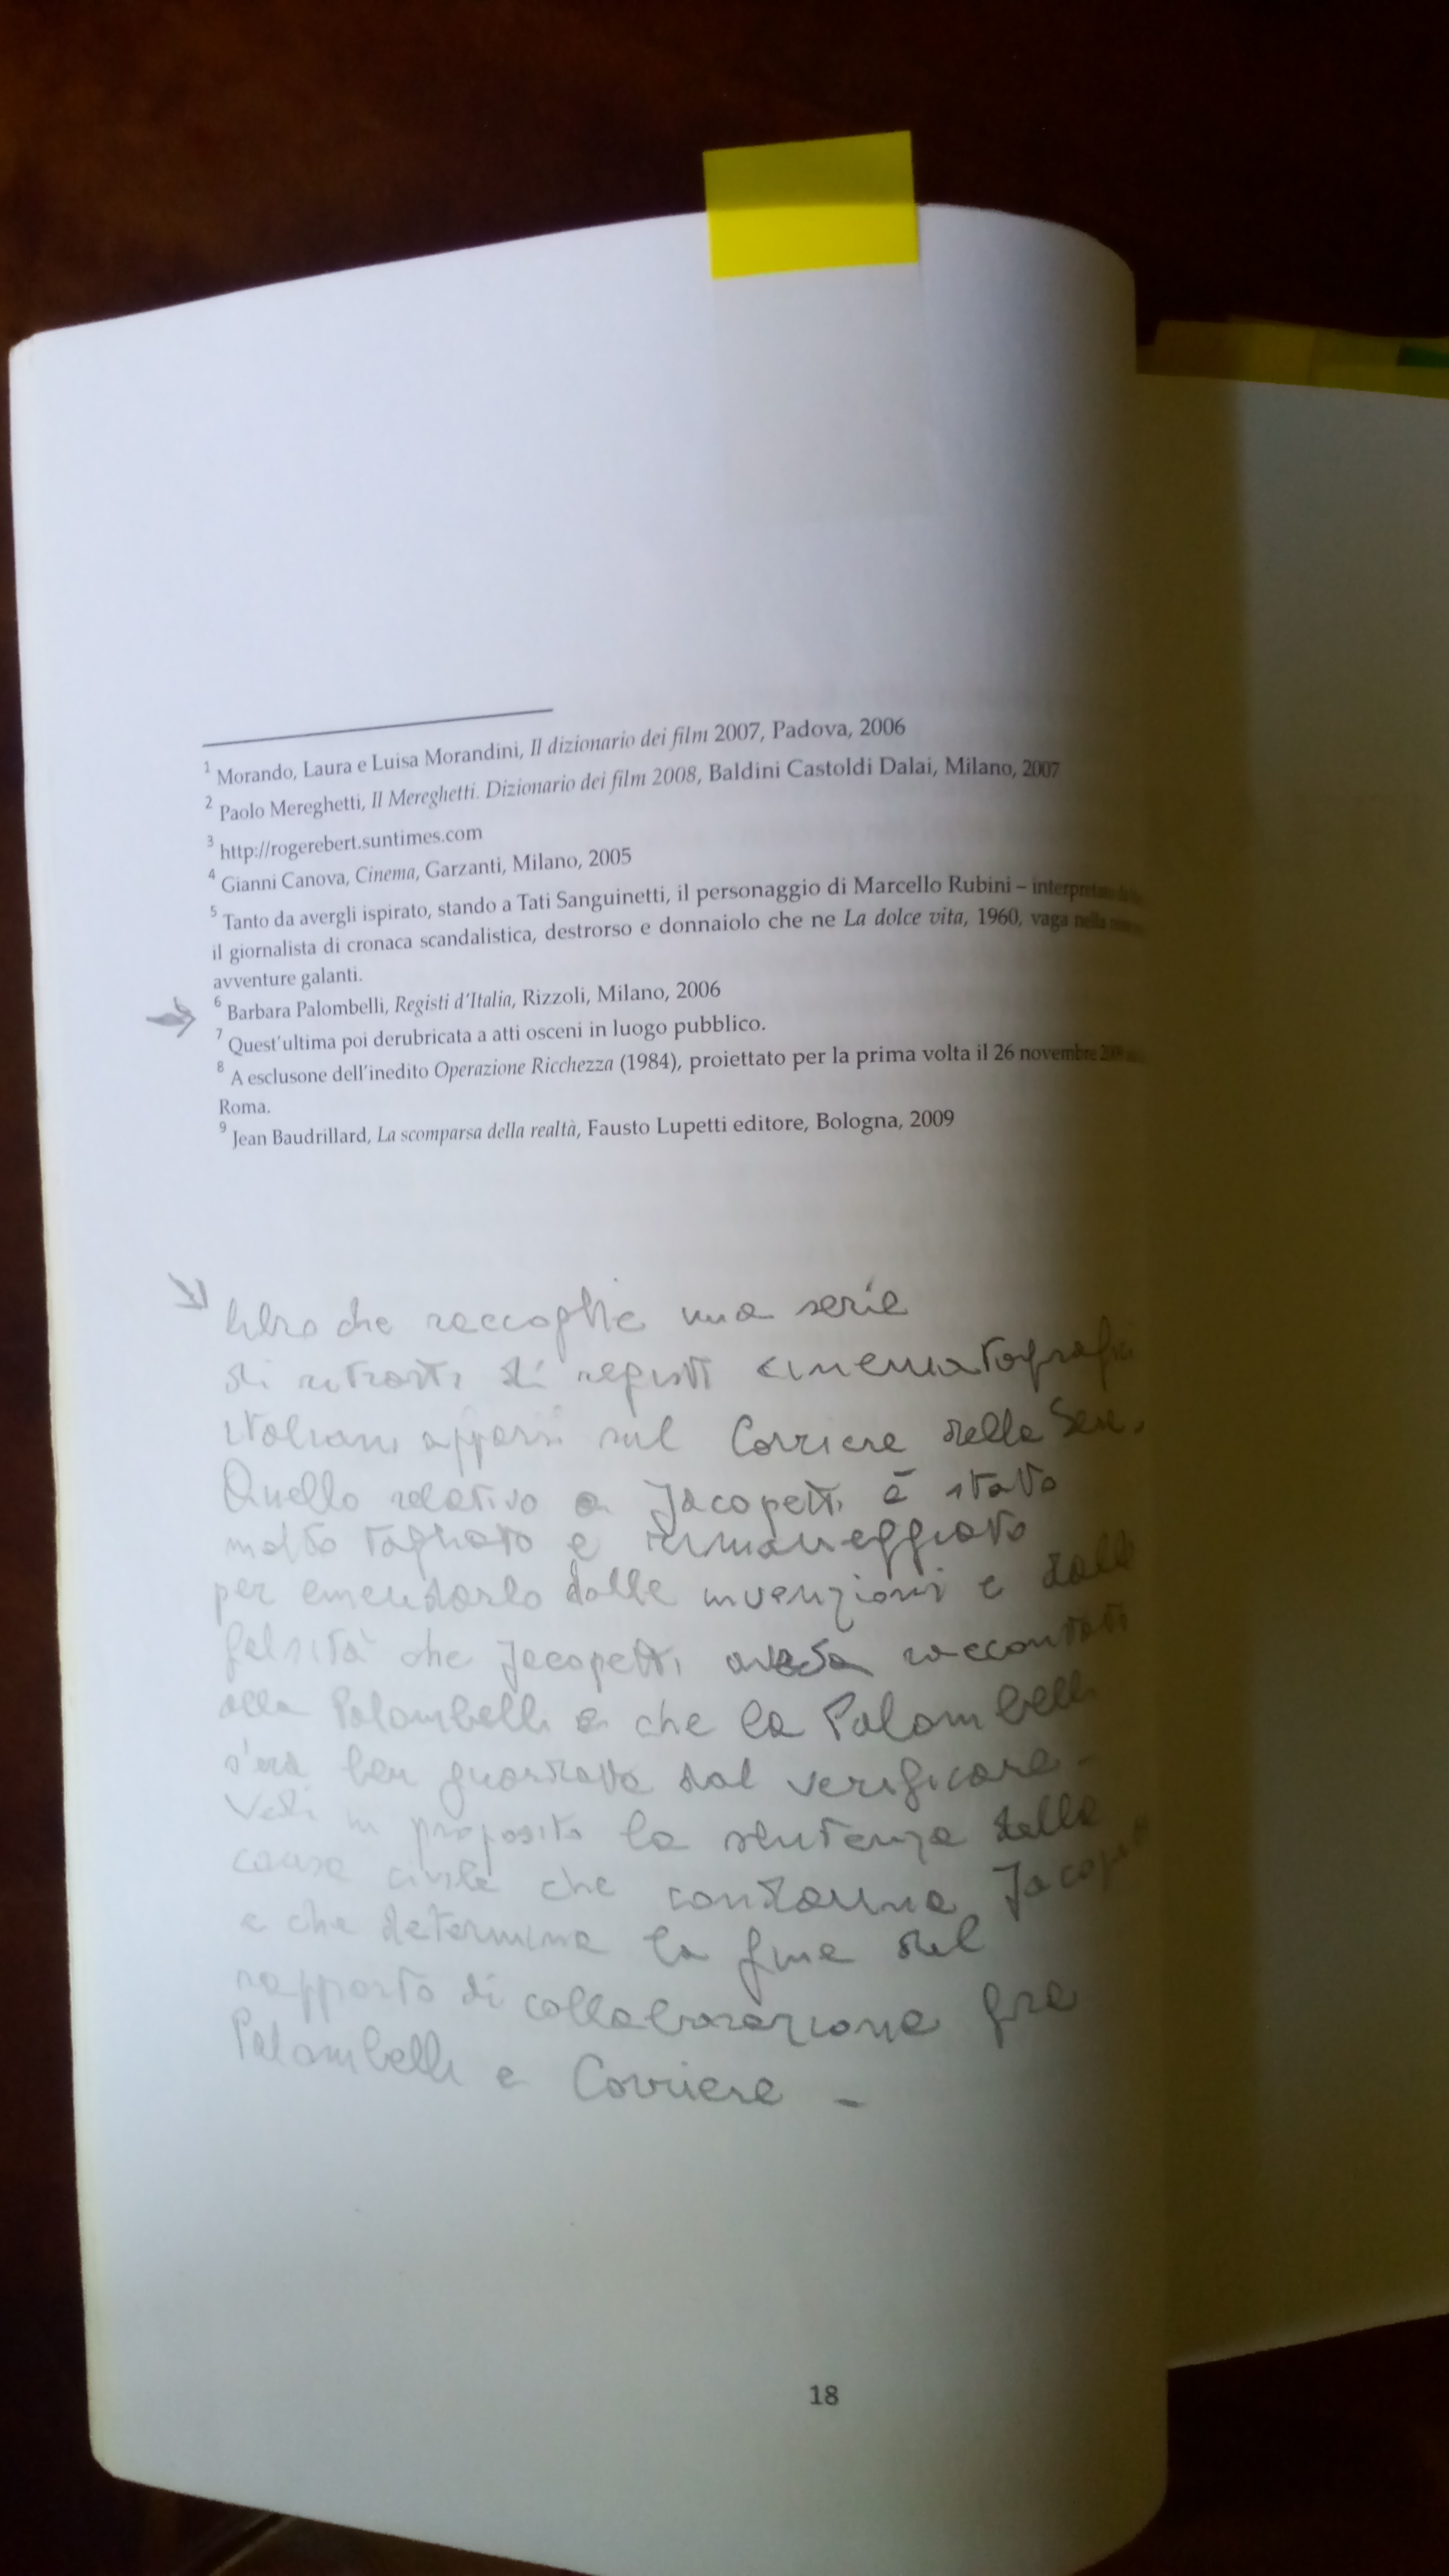 1 Morando, Laura e Luisa Morandini, Il dizionario dei film 2007, Padova, 2006
2 Paolo Mereghetti, Il Mereghetti. Dizionario dei film 2008, Baldini Castoldi Dalai, Milano, 2007
3 http://rogerebert.suntimes.com
4 Gianni Canova, Cinema, Garzanti, Milano, 2005
5 Tanto da avergli ispirato, stando a Tati Sanguinetti, il personaggio di Marcello Rubini – interpretato
il giornalista di cronaca scandalistica, destrorso e donnaiolo che ne La dolce vita, 1960, vaga nella
avventure galanti.
6 Barbara Palombelli, Registi d'Italia, Rizzoli, Milano, 2006
7 Quest'ultima poi derubricata a atti osceni in luogo pubblico.
8 A esclusone dell'inedito Operazione Ricchezza (1984), proiettato per la prima volta il 26 novembre
Roma.
9 Jean Baudrillard, La scomparsa della realtà, Fausto Lupetti editore, Bologna, 2009
libro che raccoglie una serie
di ritratti di registi cinematografici
italiani apparsi sul Corriere della Sera.
Quello relativo a Jacopetti è stato
molto tagliato e rimaneggiato
per emendarlo dalle invenzioni e dalle
falsità che Jacopetti aveva raccontato
alla Palombelli e che la Palombelli
s'era ben guardata dal verificare -
Vedi in proposito la sentenza della
causa civile che condanna Jacopetti
e che determina la fine del
rapporto di collaborazione fra
Palombelli e Corriere -
18